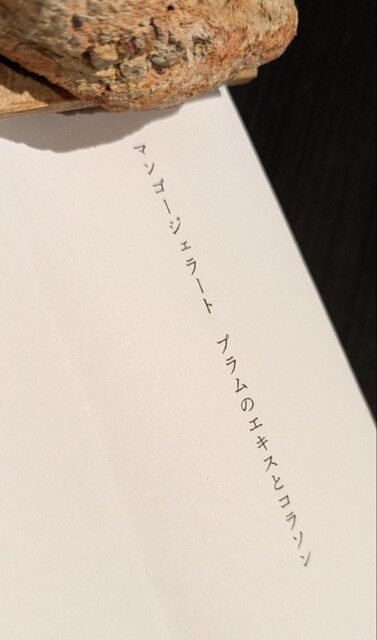 マンゴージェラート　プラムのエキスとコラソン